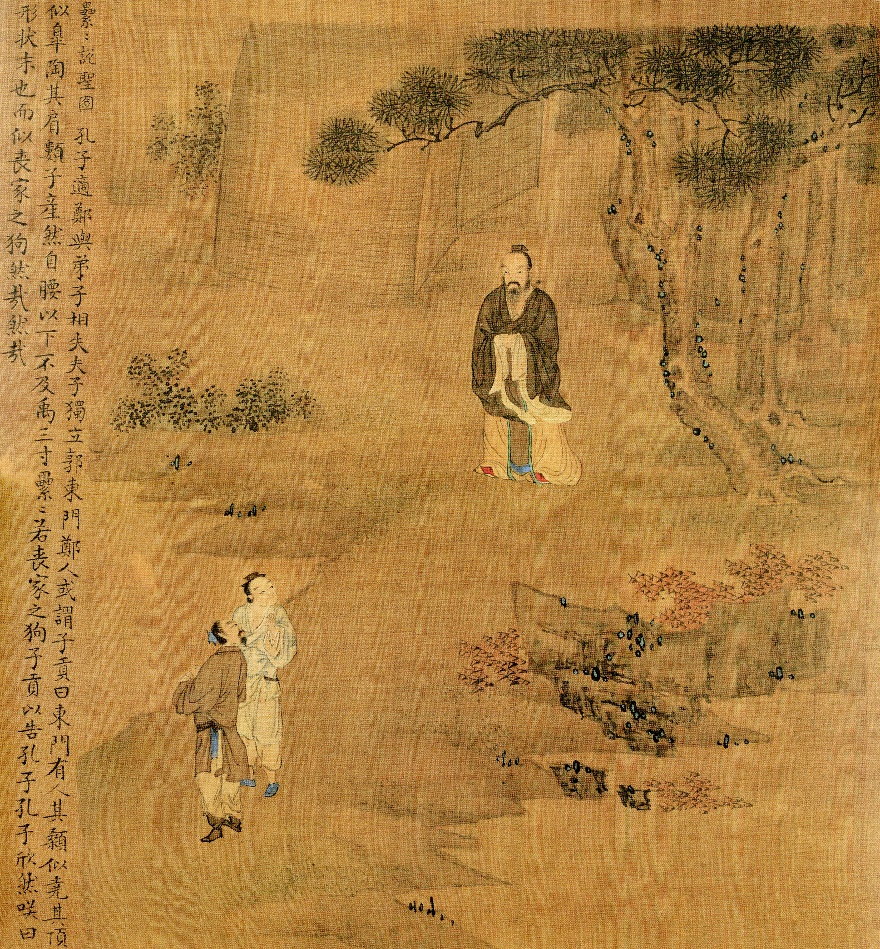 纍〻說聖圖 孔子適鄭與弟子相失夫子獨立郭東門鄭人或謂子貢曰東門有人其顙似堯其項
似皐陶其肩類子產然自腰以下不及禹三寸纍〻若喪家之狗子貢以告孔子孔子欣然咲曰
形狀末也而似喪家之狗然哉然哉